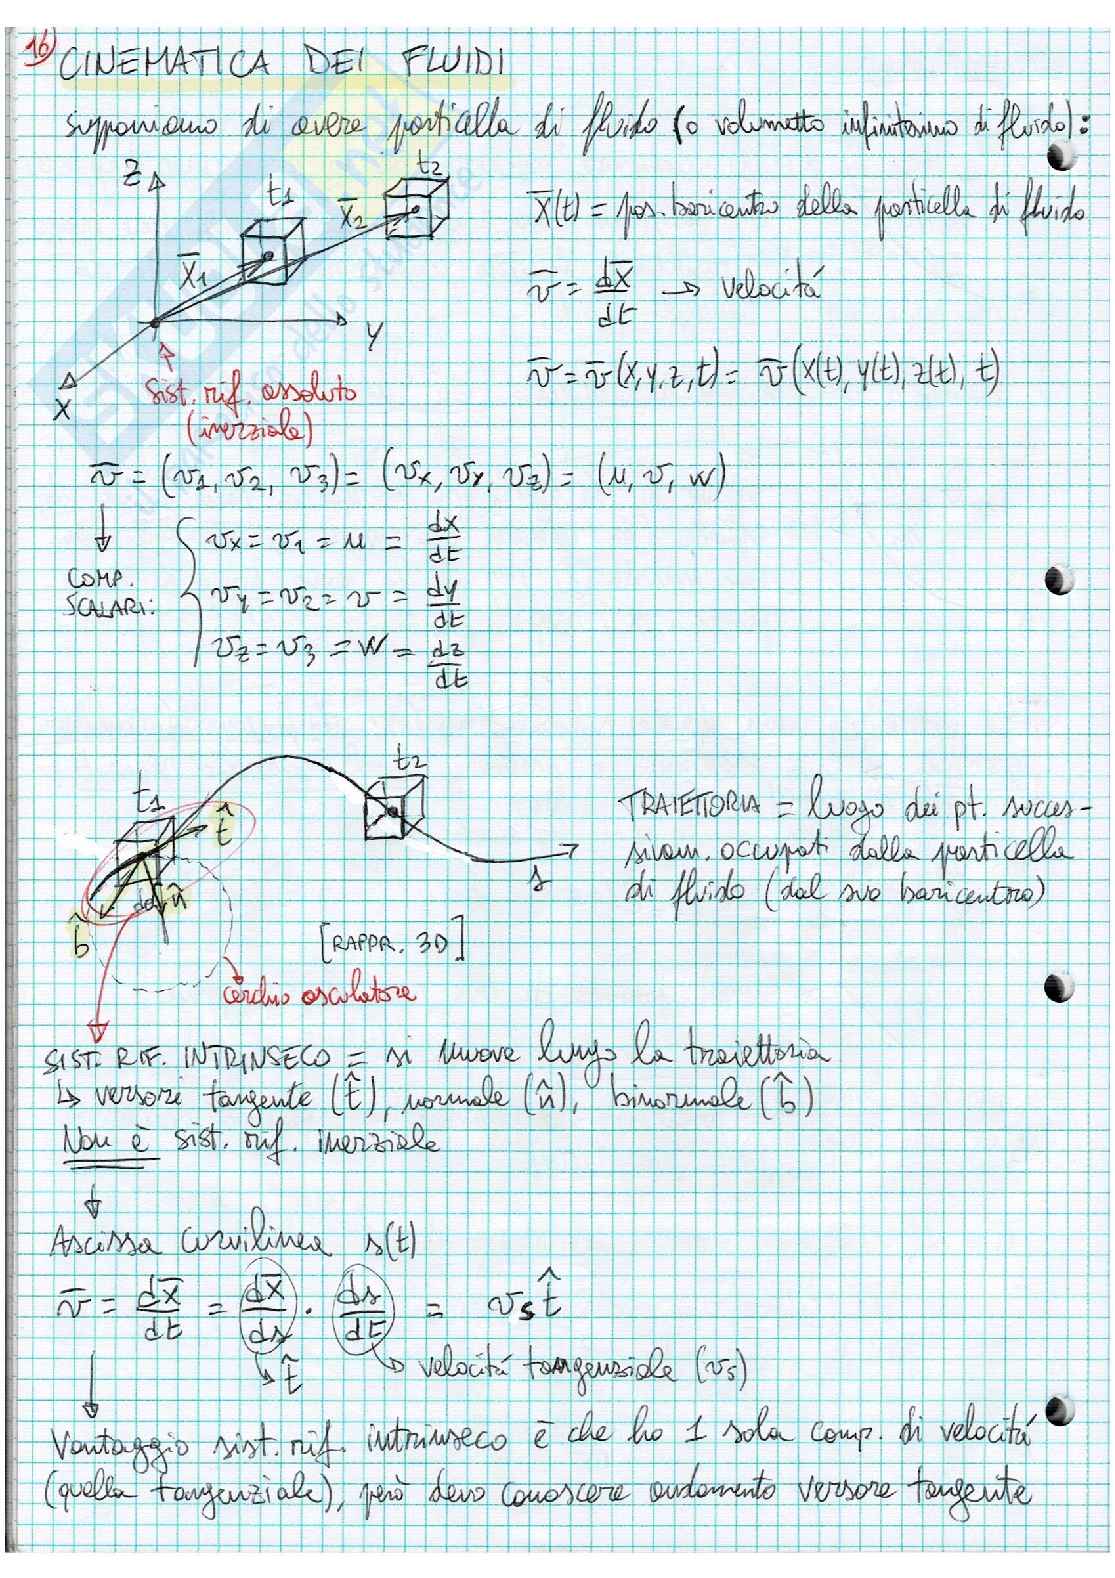 16)
CINEMATICA DEI FLUIDI
supponiamo di avere particella di fluido (o volumetto infinitesimo di fluido):
z
t1
t2
x̄1
x̄2
y
x
sist. rif. assoluto
(inerziale)
x̄(t) = pos. baricentro della particella di fluido
v̄ = dx̄/dt → velocitá
v̄ = v̄(x, y, z, t) = v̄(x(t), y(t), z(t), t)
v̄ = (v1, v2, v3) = (vx, vy, vz) = (u, v, w)
↓
COMP.
SCALARI:
vx = v1 = u = dx/dt
vy = v2 = v = dy/dt
vz = v3 = w = dz/dt
t1
t2
t̂
n̂
b̂
s
[RAPPR. 3D]
cerchio osculatore
TRAIETTORIA = luogo dei pt. succes-
sivam. occupati dalla particella
di fluido (dal suo baricentro)
SIST. RIF. INTRINSECO = si muove lungo la traiettoria
↳ versori tangente (t̂), normale (n̂), binormale (b̂)
Non è sist. rif. inerziale
↓
Ascissa curvilinea s(t)
v̄ = dx̄/dt = dx̄/ds · ds/dt = vs t̂
↳ t̂
→ velocitá tangenziale (vs)
↓
Vantaggio sist. rif. intrinseco è che ho 1 sola comp. di velocitá
(quella tangenziale), però devo conoscere andamento versore tangente